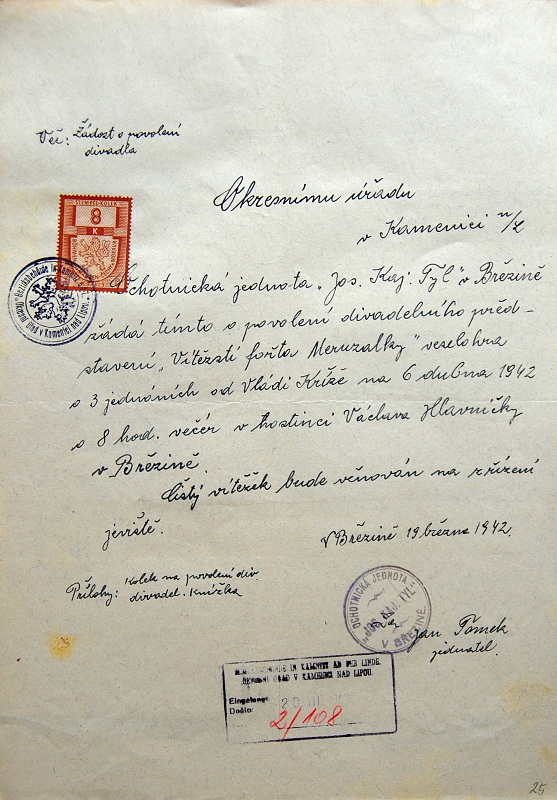 Věc: Žádost o povolení
divadla
STEMPEL-KOLEK
8
K
Okresnímu úřadu
v Kamenici n/L
Ochotnická jednota „Jos. Kaj. Tyl" v Březině
žádá tímto o povolení divadelního před-
stavení „Vítězství forta Meruzalky" veselohra
o 3 jednáních od Vládi Kříže na 6 dubna 1942
o 8 hod. večer v hostinci Václava Hlavničky
v Březině.
Čistý vítěžek bude věnován na zřízení
jeviště.
V Březině 19 března 1942.
Přílohy: Kolek na povolení div.
divadel. Knížka
OCHOTNICKÁ JEDNOTA
„JOS. KAJ. TYL"
V BŘEZINĚ.
Jan Tomek
jednatel.
IN KAMNITZ AN DER LINDE.
OKRESNÍ ÚŘAD V KAMENICI NAD LIPOU.
Eingelangt
Došlo:
2/108
25